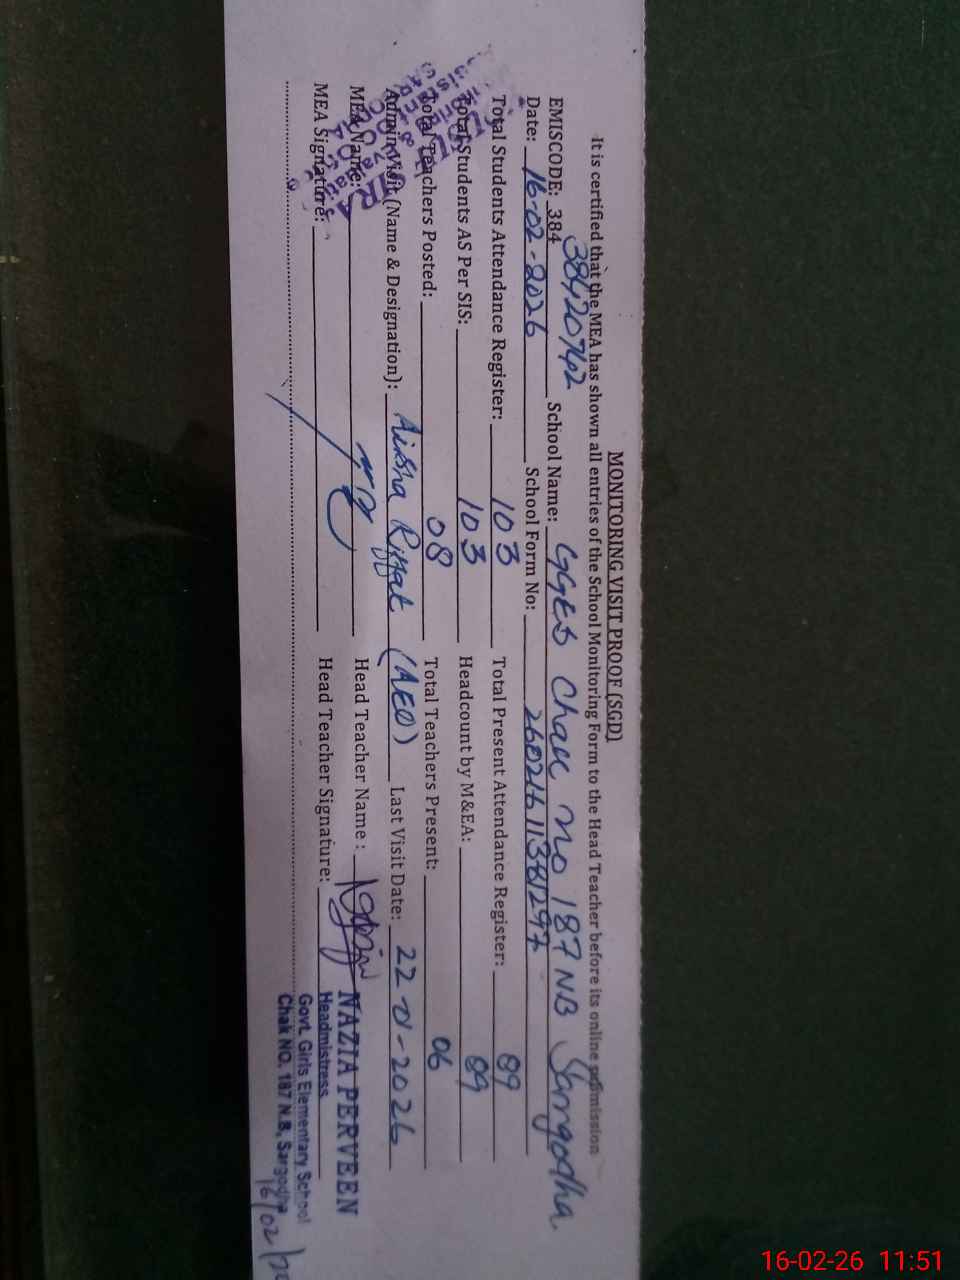 MONITORING VISIT PROOF (SGD)
It is certified that the MEA has shown all entries of the School Monitoring Form to the Head Teacher before its online submission
EMISCODE: 384 38420742 School Name: GGES Chak No 187 NB Sargodha
Date: 16-02-2026 School Form No: 26021611381297
Total Students Attendance Register: 103 Total Present Attendance Register: 89
Total Students AS Per SIS: 103 Headcount by M&EA: 89
Total Teachers Posted: 08 Total Teachers Present: 06
Admin Visit (Name & Designation): Aisha Riffat (AEO) Last Visit Date: 22-01-2026
MEA Name: Head Teacher Name: NAZIA PERVEEN
MEA Signature: Head Teacher Signature: Headmistress
Govt. Girls Elementary School
Chak NO. 187 N.B, Sargodha
16/02/
16-02-26 11:51